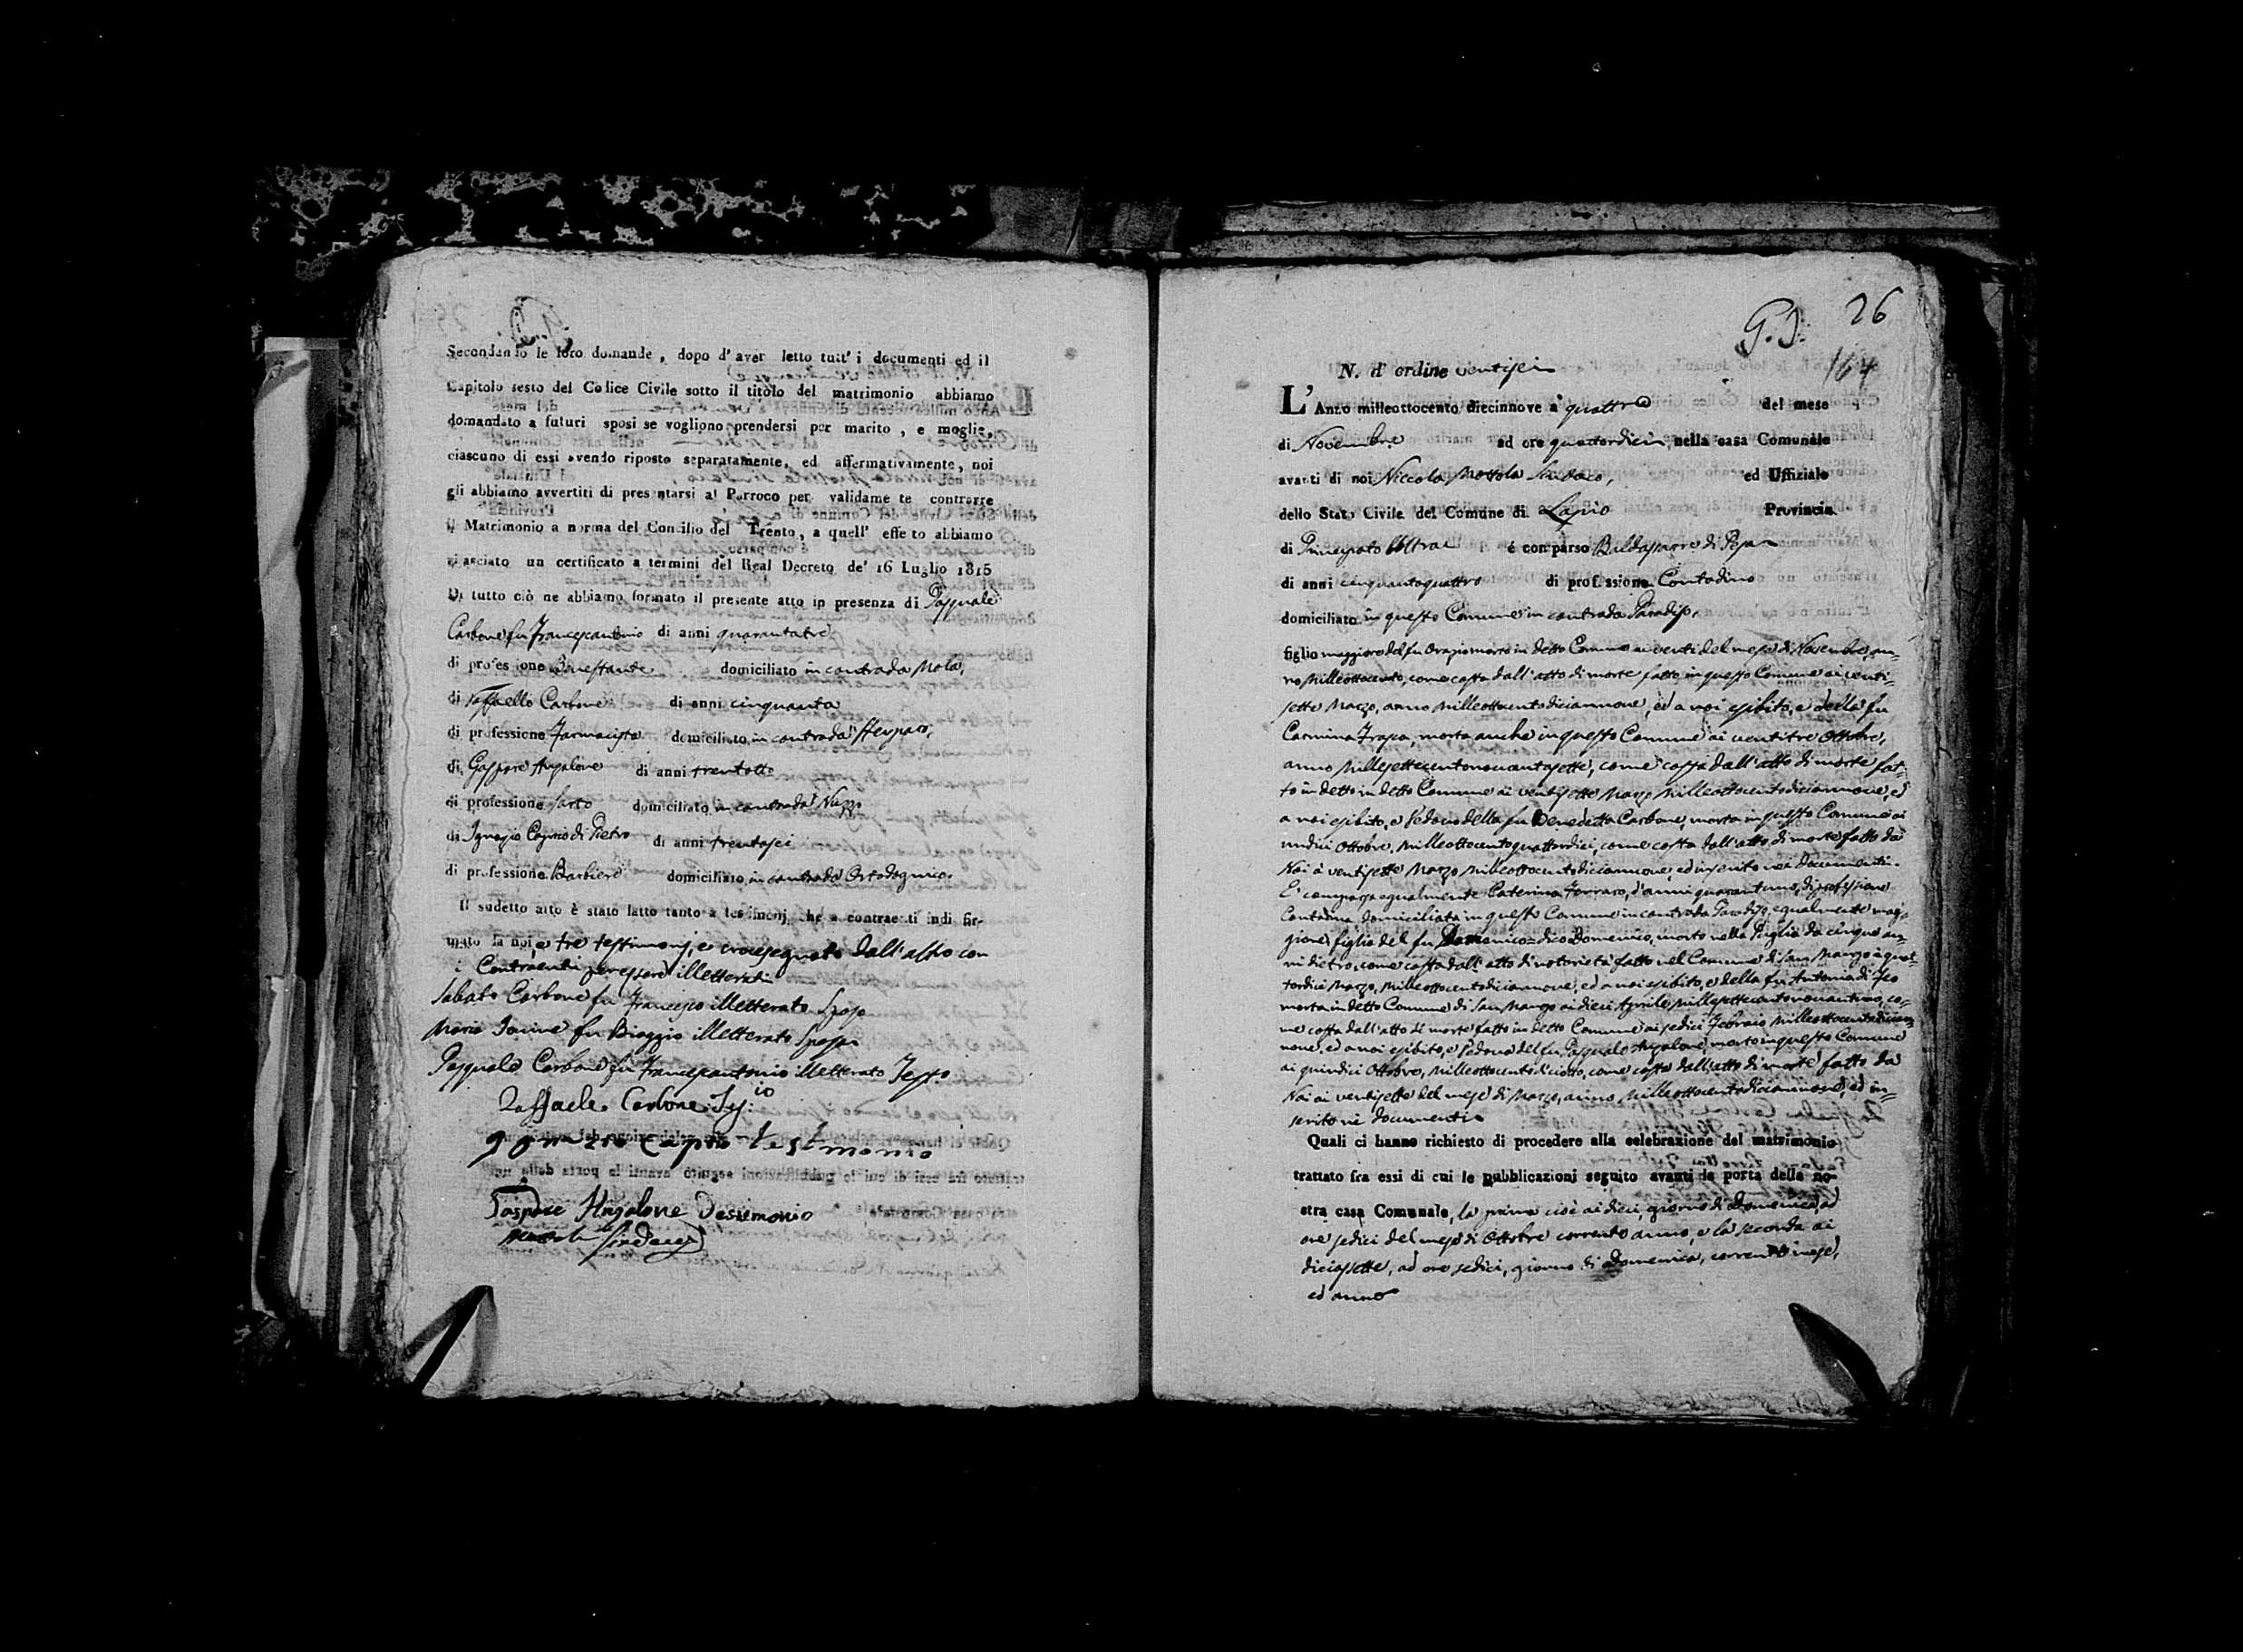 Secondando le loro domande, dopo d'aver letto tutt'i documenti ed il
Capitolo sesto del Codice Civile sotto il titolo del matrimonio abbiamo
domandato a futuri sposi se vogliono prendersi per marito, e moglie,
ciascuno di essi avendo riposto separatamente, ed affermativamente, noi
gli abbiamo avvertiti di presentarsi al Parroco per validamente contrarre
il Matrimonio a norma del Concilio del Trento, a quell' effetto abbiamo
rilasciato un certificato a termini del Real Decreto de' 16 Luglio 1815
Di tutto ciò ne abbiamo formato il presente atto in presenza di Pasquale
Carbone fu Francescantonio di anni quarantatrè
di professione Benestante domiciliato in contrada Mola,
di Raffaello Carbone di anni cinquanta
di professione Farmacista domiciliato in contrada
di Gaspare Angalone di anni trentotto
di professione Sarto domiciliato in contrada Nuzzo
di Ignazio Caprio di Pietro di anni trentasei
di professione Barbiere domiciliato in contrada
Il sudetto atto è stato letto tanto a testimonj, che a contraenti indi fir-
mato da noi, e tre testimonj, e crocesegnato dall'altro con
i Contraenti per essere illetterati
Sabato Carbone fu Francesco illetterato Sposo
Maria Iannine fu Biaggio illetterato Sposa
Pasquale Carbone fu Francescantonio illetterato Testo
Raffaele Carbone Tes:io
gnazio Caprio testmonio
Gaspare Angalone Testemonio
Sindaco
G. D: 26
164
N. d' ordine ventisei
L' Anno milleottocento diecinnove a' quattro del mese
di Novembre ad ore quattordici, nella casa Comunale
avanti di noi Niccola Mottola Sindaco, ed Uffiziale
dello Stato Civile del Comune di Lapio Provincia
di Principato Ultra è comparso Baldassarre di Pepa
di anni cinquantaquattro di professione Contadino
domiciliato in questo Comune in contrada Paradiso,
figlio maggiore del fu Orazio morto in detto Comune ai venti del mese di Novembre, an-
no Milleottocento, come costa dall'atto di morte fatto in questo Comune ai venti-
sette Marzo, anno Milleottocentodiciannove, ed a noi esibito, e della fu
Carmina Trapa, morta anche in questo Comune ai ventitre Ottobre,
anno Millesettecentonovantasette, come costa dall'atto di morte fat-
to in detto in detto Comune ai ventisette Marzo Milleottocentodiciannove, ed
a noi esibito, e Vedovo della fu Benedetta Carbone, morta in questo Comune ai
undici Ottobre, Milleottocentoquattordici, come costa dall'atto di morte fatto da
Noi à ventisette Marzo Milleottocentodiciannove, ed inserito nei Documenti.
E' comparsa egualmente Caterina Ferraro, d'anni quarantuno, di professione
Contadina domiciliata in questo Comune in contrada Paradiso, egualmente mag-
giore, figlia del fu Domenico = dico Domenico, morto nella Puglia da cinque an-
ni dietro, come costa dall'atto di notorietà fatto nel Comune di San Mango à quat-
tordici Marzo, Milleottocentodiciannove, ed a noi esibito, e della fu Antonia di Feo
morta in detto Comune di San Mango ai dieci Aprile Millesettecentonovantuno, co-
me costa dall'atto di morte fatto in detto Comune ai sedici Febraio Milleottocentodician-
nove, ed a noi esibito, e Vedova del fu Pasquale Angalone, morto in questo Comune
ai quindici Ottobre, Milleottocentodiciotto, come costa dall'atto di morte fatto da
Noi ai ventisette del mese di Marzo, anno Milleottocentodiciannove, ed in-
serito ne' documenti
Quali ci hanno richiesto di procedere alla celebrazione del matrimonio
trattato fra essi di cui le pubblicazioni seguito avanti la porta della no-
stra casa Comunale, la prima cioè ai dieci, giorno di Domenica, ad
ore sedici del mese di Ottobre corrento anno, e la seconda ai
diciassette, ad ore sedici, giorno di Domenica, corrento mese,
ed anno